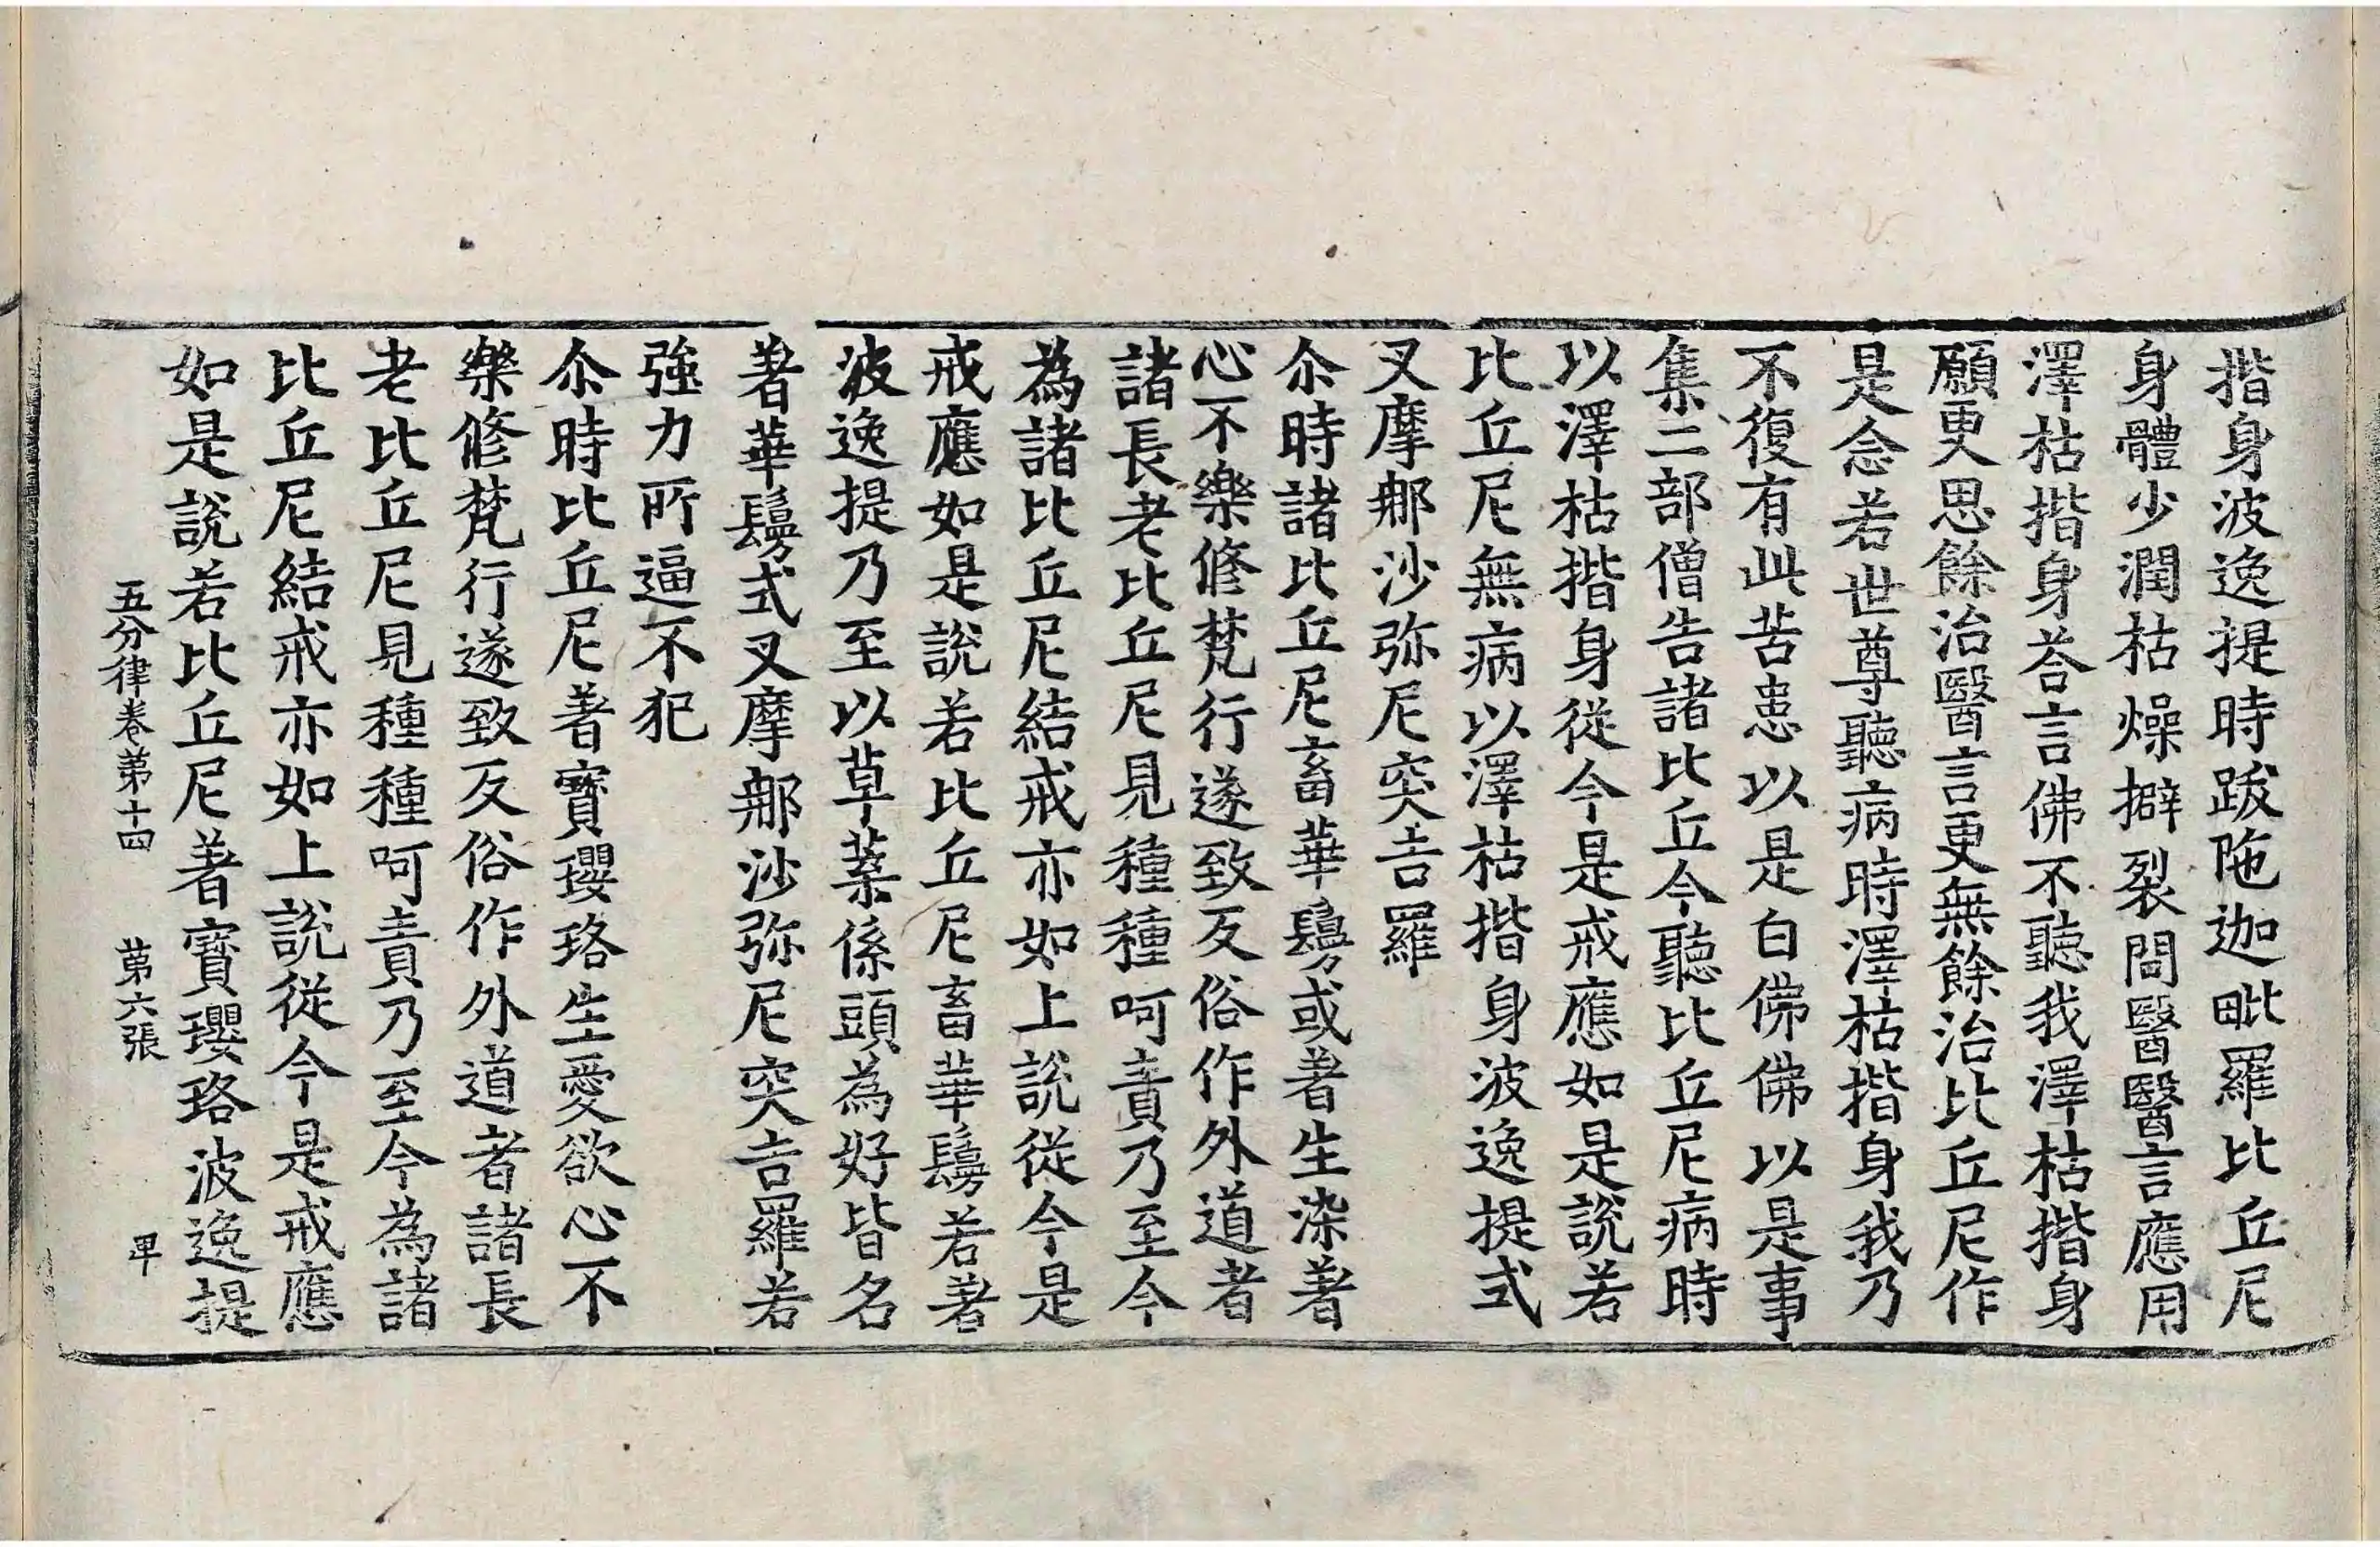 揩身波逸提時跋陁迦毗羅比丘尼
身體少潤枯燥擗裂問醫醫言應用
澤枯揩身荅言佛不聽我澤枯揩身
願更思餘治醫言更無餘治比丘尼作
是念若世尊聽病時澤枯揩身我乃
不復有此苦患以是白佛佛以是事
集二部僧告諸比丘今聽比丘尼病時
以澤枯揩身從今是戒應如是說若
比丘尼無病以澤枯揩身波逸提式
叉摩𨚗沙弥尼突吉羅
尒時諸比丘尼畜華鬘或著生染著
心不樂修梵行遂致反俗作外道者
諸長老比丘尼見種種呵責乃至今
為諸比丘尼結戒亦如上說從今是
戒應如是說若比丘尼畜華鬘若著
波逸提乃至以草葉係頭為好皆名
著華鬘式叉摩𨚗沙弥尼突吉羅若
強力所逼不犯
尒時比丘尼著寶瓔珞生愛欲心不
樂修梵行遂致反俗作外道者諸長
老比丘尼見種種呵責乃至今為諸
比丘尼結戒亦如上說從今是戒應
如是說若比丘尼著寶瓔珞波逸提
五分律卷第十四 第六張